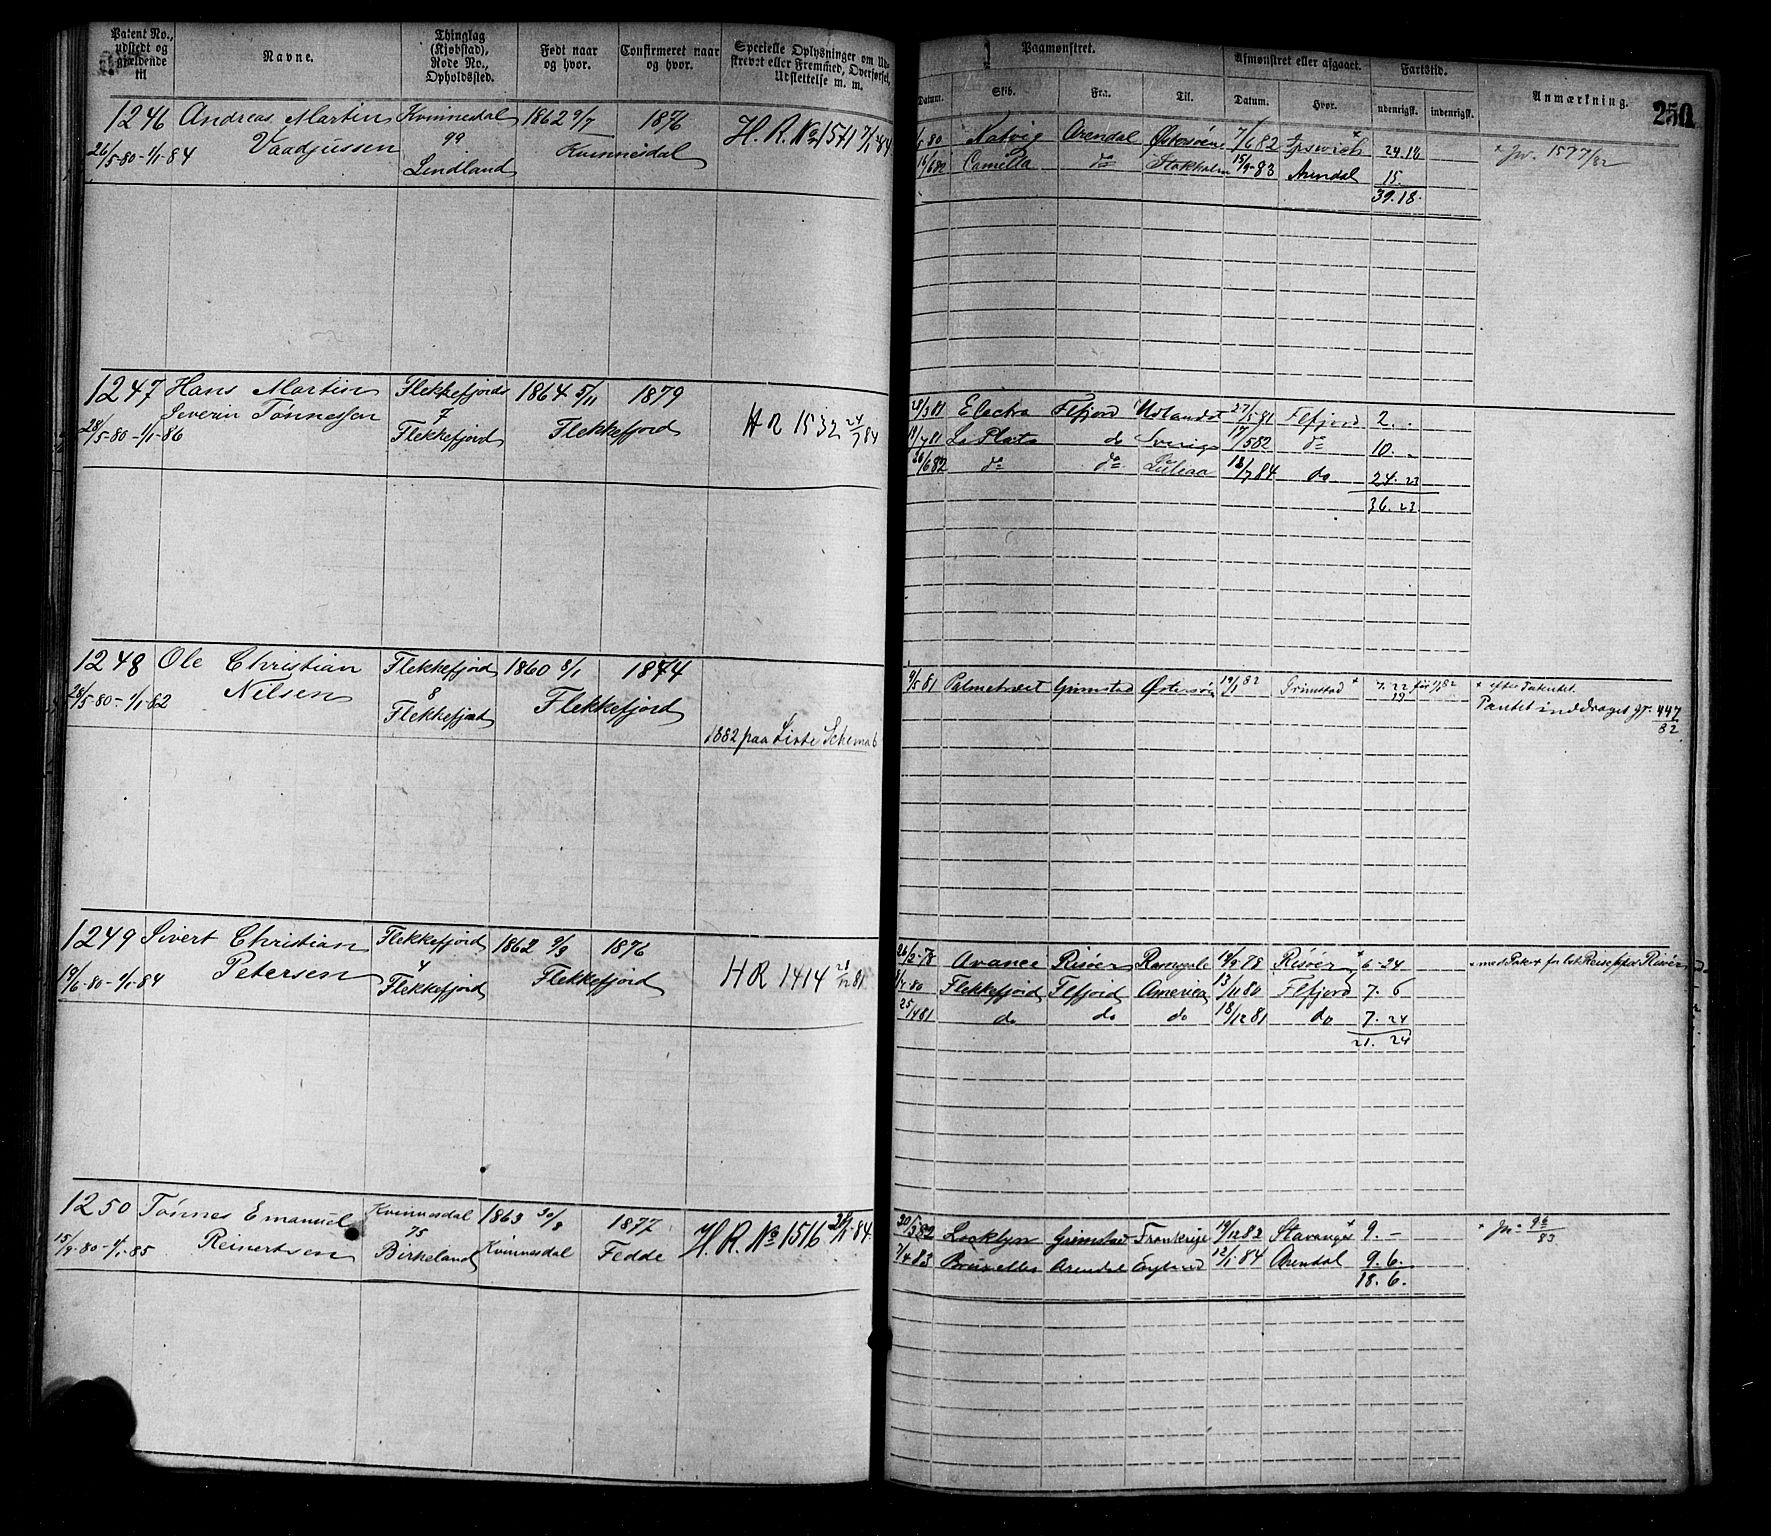 Patent No., udstedt og gjældende til
Navne.
Thinglag (Kjøbstad), Rode No., Opholdssted.
Født naar og hvor.
Confirmeret naar og hvor.
Specielle Oplysninger om Udskrevet eller Fremmed, Overførsel, Udslettelse m. m.
Paamønstret.
Afmønstret eller afgaaet.
Fartstid.
Anmærkning.
250
Datum. Skib. Fra. Til. Datum. Hvor. udenrigst. indenrigst.
1246 Andreas Martin Kvinnesdal 1862 9/7 1876 H. R. No 1541 7/1 84
Vaadjussen 99 Kvinnesdal
26/5-80-1/1-84 Lindland
Natvig Arendal Østersøen 7/6 82 Ipsevich + 24.18 + Jvr. 1577/82
Camilla do Stokholm 15/9-83 Arendal 15.
39.18.
1247 Hans Martin Flekkefjords 1864 5/11 1879 H R 1532 24/7 84
Severin Tønnessen 7
28/5-80-1/1-86 Flekkefjord Flekkefjord
28/3 81 Electra Flefjord Udlandet 27/5 81 Flefjord 2.
19/7 81 La Plata do Sverige 17/5 82 do 10.
26/6 82 do do Luleaa 18/7 84 do 24.23
36.23
1248 Ole Christian Flekkefjord 1860 8/1 1874
Nilsen 8 Flekkefjord
28/5-80-1/1-82 Flekkefjord
1882 paa Liste Schema 6
9/5 81 Palmetræet Grimstad Østersøn 19/1 82 Grimstad + 7.22 før 1/1 82 + efter Patentet.
19 Pantet inddraget gr. 447/82
1249 Sivert Christian Flekkefjord 1862 9/9 1876
Petersen 4 Flekkefjord H R 1414 28/12 81
19/6-80-1/1-84 Flekkefjord
26/2-78 Avance Risøer 19/9 78 Risøer + 6-24
Flekkefjord Flefjord America 13/11 80 Flefjord 7.6
25/4 81 do do do 18/12 81 do 7.24
21.24
1250 Tønnes Emanuel Kvinnesdal 1863 30/8 1877 H. R. No 1516 84.
Reinertsen 75 Kvinnesdal Fedde
15/9-80-1/1-85 Birkeland
30/5 82 Locklyn Grimstad Frankrige 19/12 82 Stavanger + 9.- + Jr. 96/83
7/4 83 Bruxelles Arendal England 12/1 84 Arendal 9.6.
18.6.